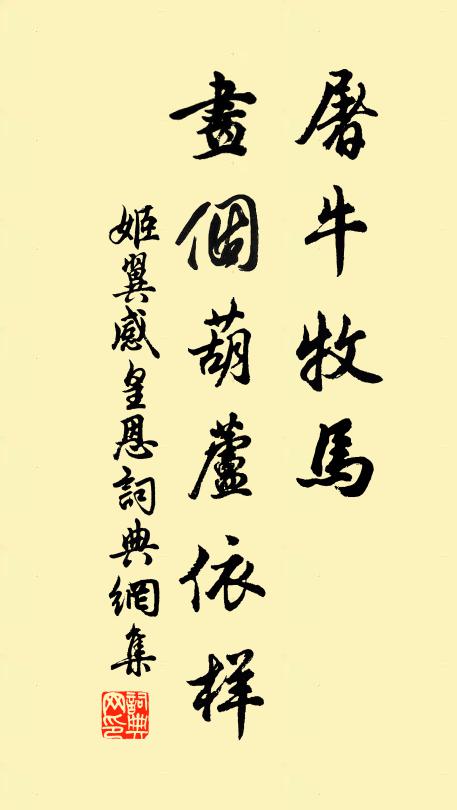 屠牛牧馬
畫個葫蘆依样
姬翼感皇恩詞典網集
詞典網印